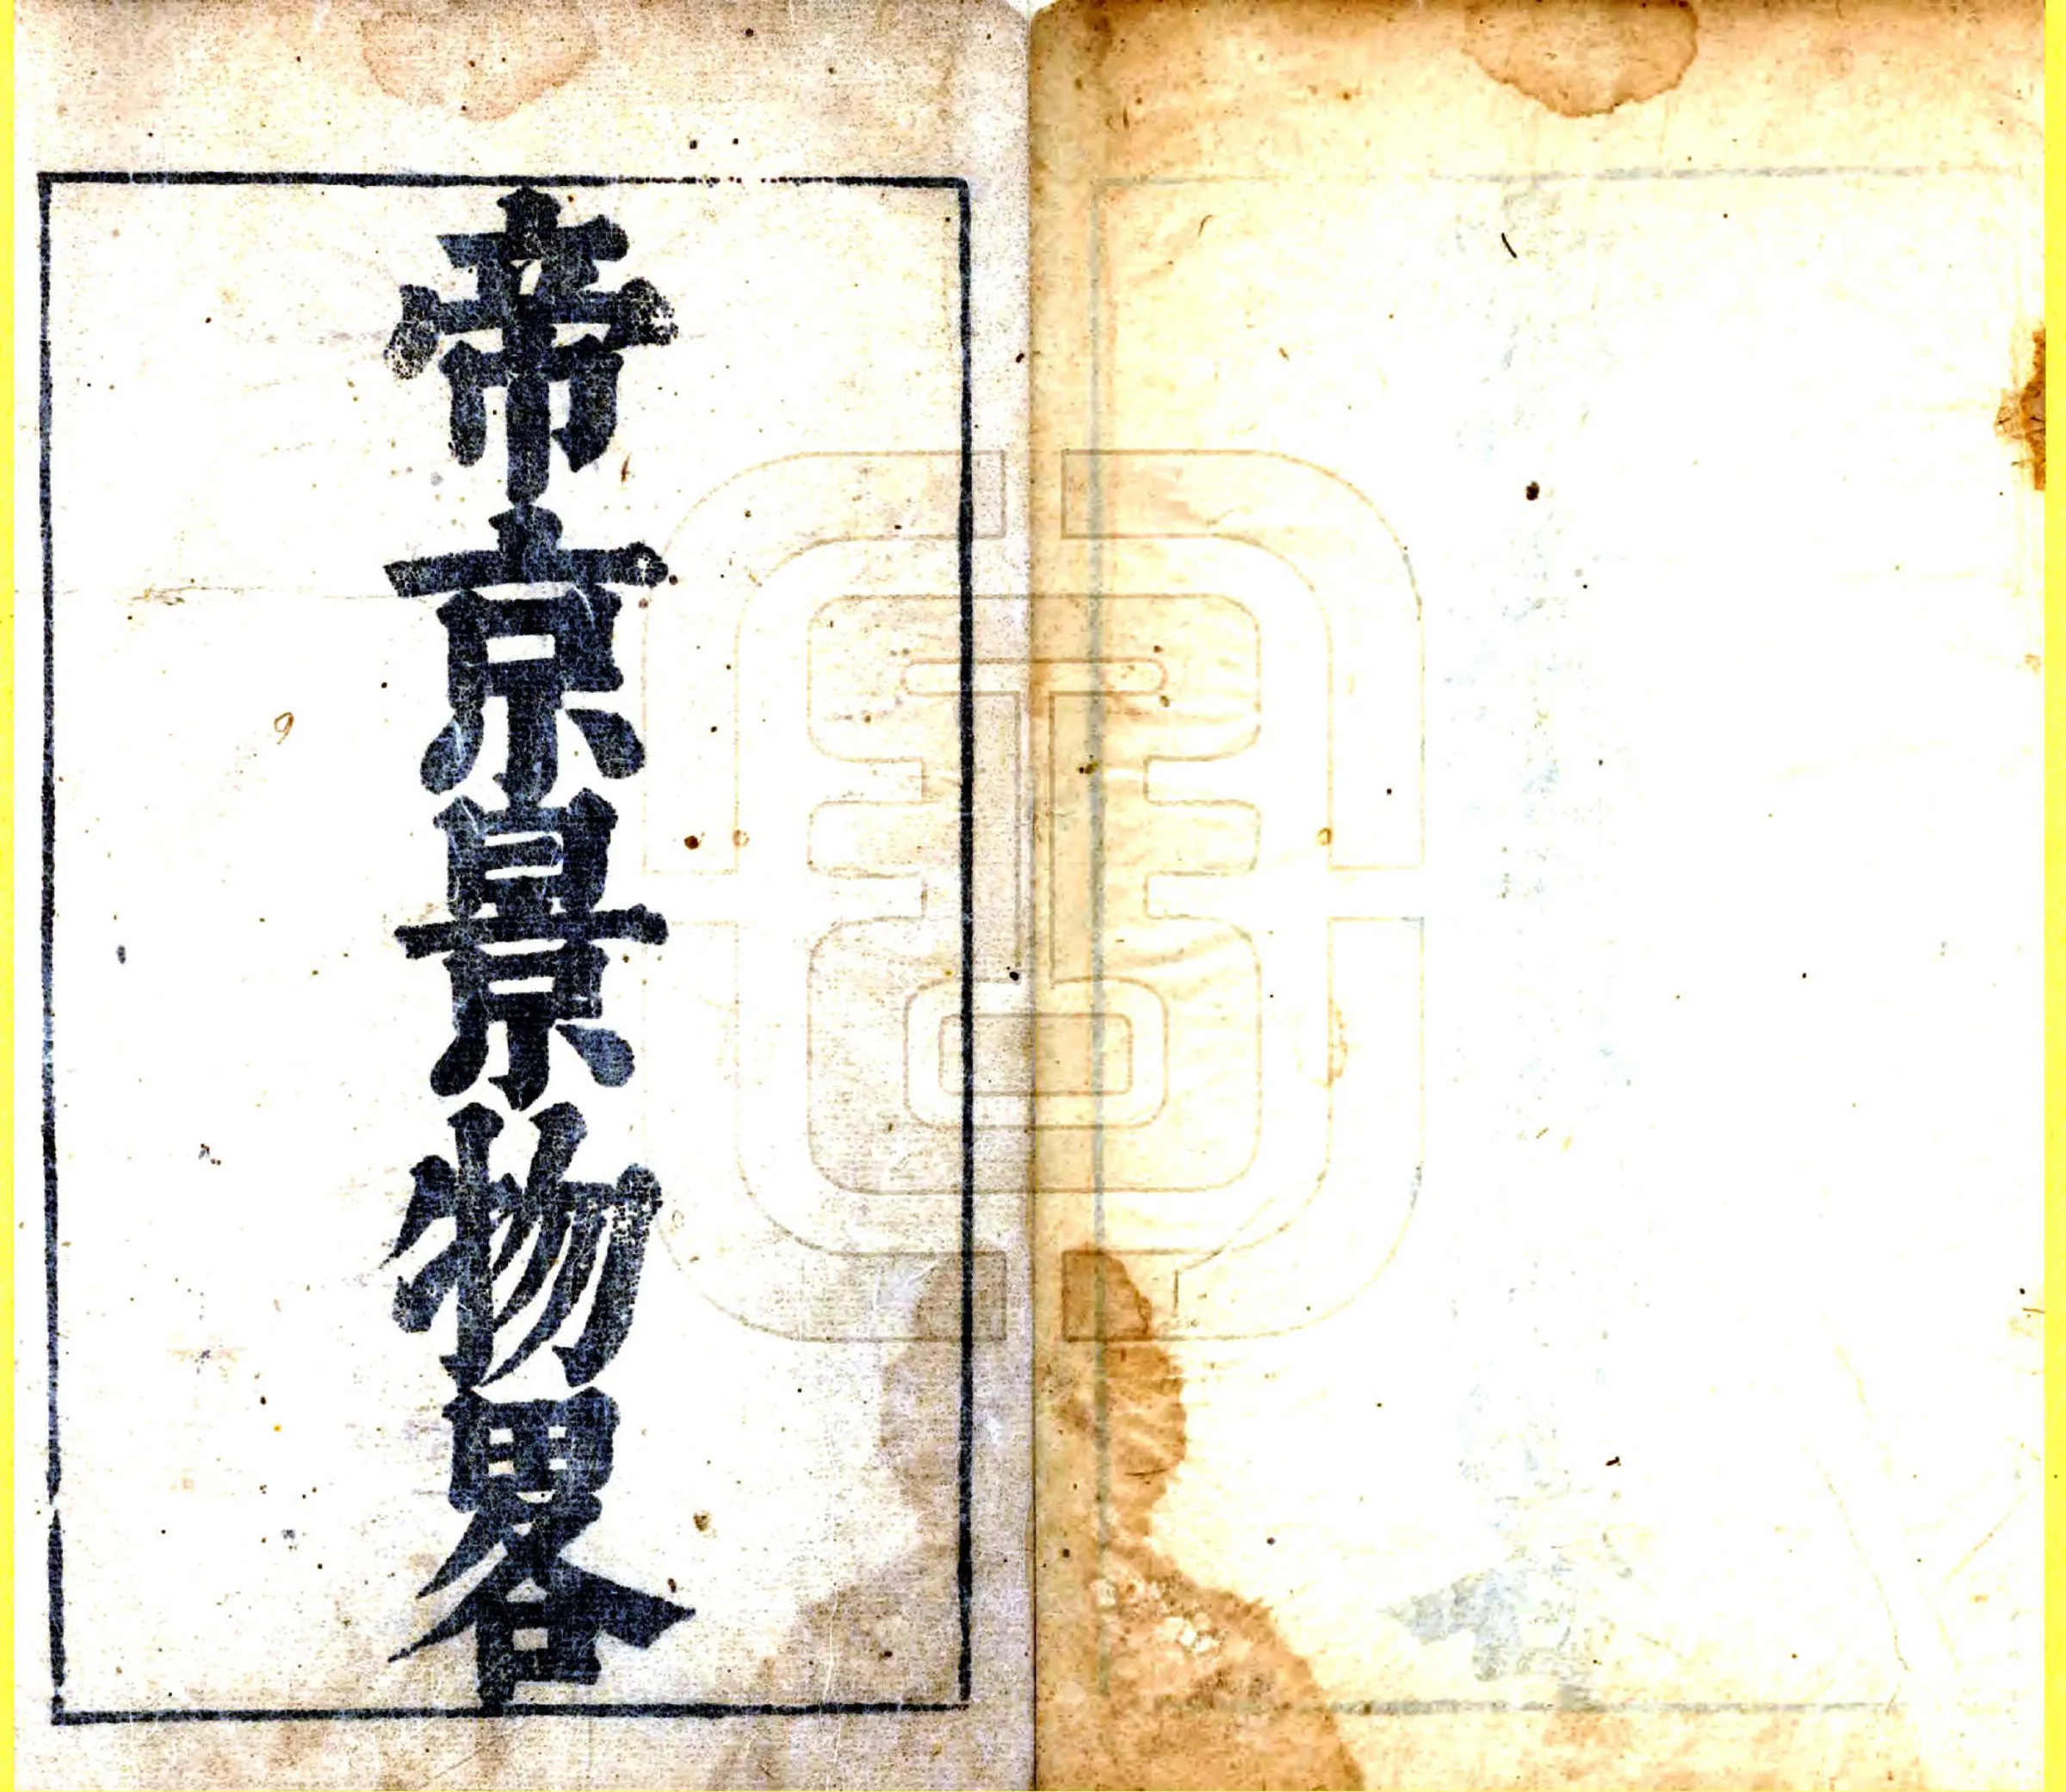 帝京景物畧